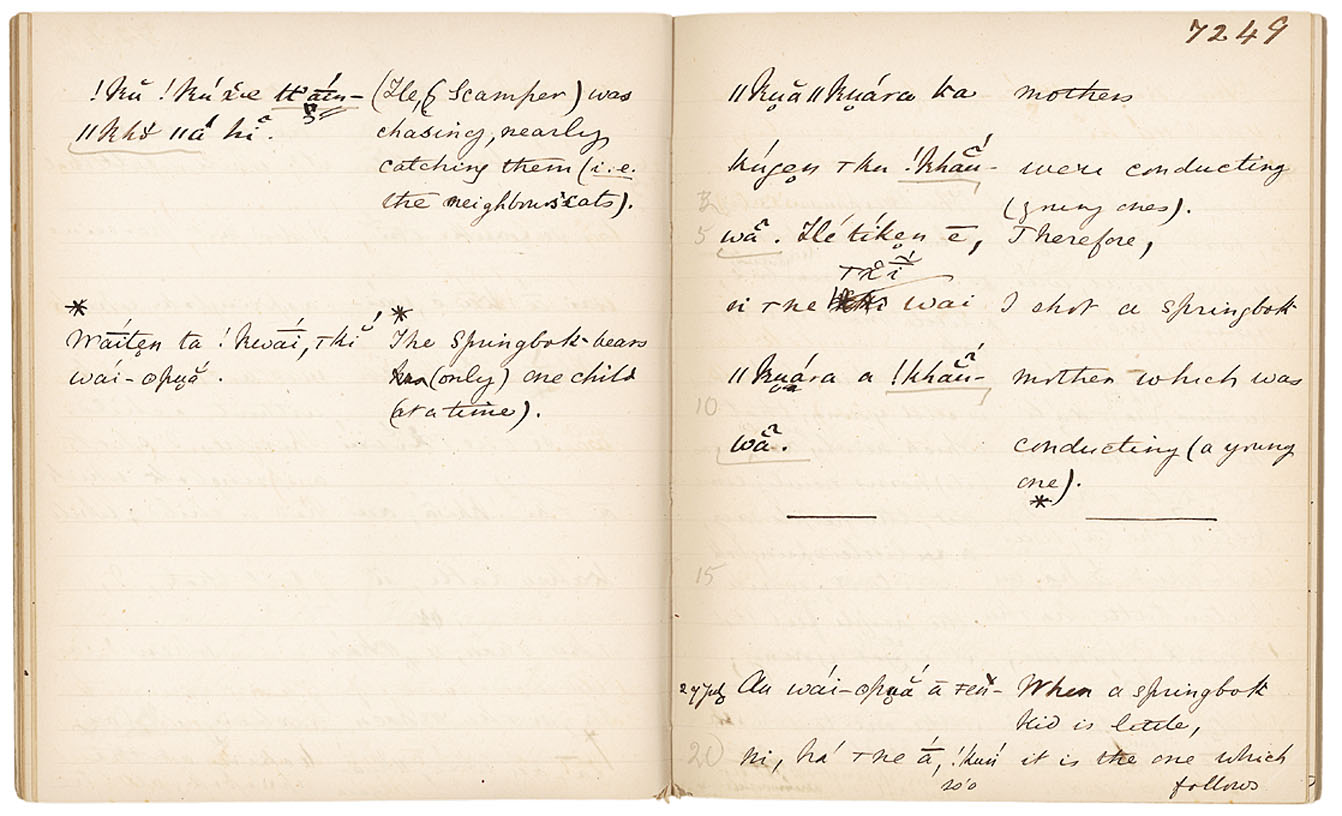 7249
!kŭ !kú x̌e
(He, (Scamper) was
chasing, nearly
catching them (i.e.
the neighbour's cats).
*
Wáitẹn ta !kwái, ⊤kĭ
wai-opụă.
*
The springbok bears
(only) one child
(at a time).
ǁkụăǁkụára ka mothers
kúgẹn ⊤kụ !khãũ- were conducting
(young ones).
5 wã̆. Hé tíkẹn ē, Therefore,
ṅ ⊤ne wai I shot a springbok
ǁkụára a !khãũ- mother which was
10
wã̆. conducting (a young
one).
*
15
27 July Au wái-opụá ā ⊤eṅ- When a springbok
kid is little,
20 ni, há ⊤ne á, it is the one which
follows